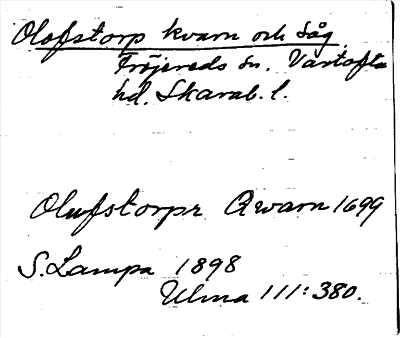 Olofstorp kvarn och såg
Fröjereds sn. Vartofta
hd. Skarab. l.
Olufstorpz Qwarn 1699
S. Lampa 1898
Ulma 111:380.